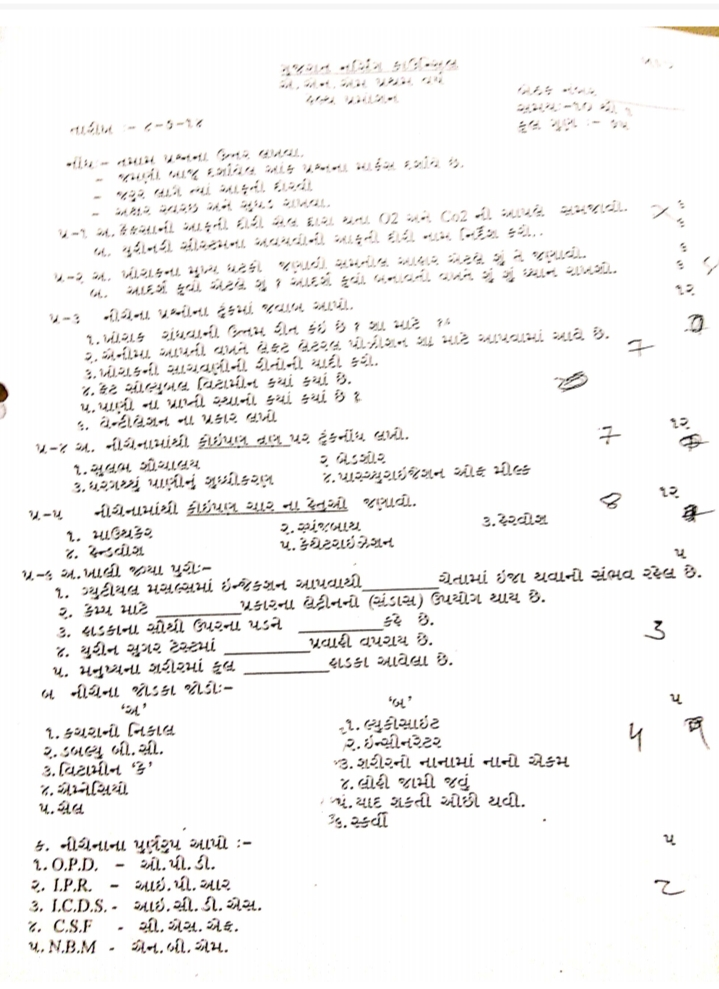 ગુજરાત નર્સિંગ કાઉન્સિલ
એ. એન. એમ પ્રથમ વર્ષ
બેઠક નંબર
સમય:-૧૦ થી ૧
તારીખ :- ૮-૭-૧૪
કુલ ગુણ :- ૭૫
નોંધ - તમામ પ્રશ્નના ઉત્તર લખવા.
- જમણી બાજુ દર્શાવેલ આંક પ્રશ્નના માર્કસ દર્શાવે છે.
- જરૂર લાગે ત્યાં આકૃતી દોરવી
- અક્ષર સ્વચ્છ અને સુઘડ રાખવા.
પ્ર-૧ અ. ફેફસાની આકૃતી દોરી સેલ દ્વારા થતા O2 અને Co2 ની આપલે સમજાવો. ૬
બ. યુરીનરી સીસ્ટમના અવયવોની આકૃતી દોરી નામ નિર્દેશ કરો. ૬
પ્ર-૨ અ. ખોરાકના મુખ્ય ઘટકો જણાવી સમતોલ આહાર એટલે શું તે જણાવો. ૬
બ. આદર્શ કૂવો એટલે શુ ? આદર્શ કૂવો બનાવતી વખતે શું શું ધ્યાન રાખશો. ૬
પ્ર-૩ નીચેના પ્રશ્નોના ટૂંકમાં જવાબ આપો. ૧૨
૧. ખોરાક રાંધવાની ઉત્તમ રીત કઇ છે ? શા માટે ?
૨. એનીમા આપતી વખતે લેફ્ટ લેટરલ પોઝીશન શા માટે આપવામાં આવે છે. 7
૩. ખોરાકની સાચવણીની રીતોની યાદી કરો.
૪. ફેટ સોલ્યુબલ વિટામીન કયાં કયાં છે.
૫. પાણી ના પ્રાપ્તી સ્થાનો કયાં કયાં છે ?
૬. વેન્ટીલેશન ના પ્રકાર લખો
પ્ર-૪ અ. નીચેનામાંથી કોઇપણ ત્રણ પર ટૂંકનોંધ લખો. 7 ૧૨
૧. સુલભ શૌચાલય ૨ બેડસોર
૩. ઘરગથ્થું પાણીનું શુધ્ધીકરણ ૪. પાસ્ચ્યુરાઇજેશન ઓફ મીલ્ક
પ્ર-૫ નીચેનામાંથી કોઇપણ ચાર ના હેતુઓ જણાવો. 8 ૧૨
૧. માઉથકેર ૨. સ્પંજબાથ ૩. હેરવોશ
૪. હેન્ડવોશ ૫. કેથેટરાઇઝેશન
પ્ર-૬ અ. ખાલી જગ્યા પુરો:- ૫
૧. ગ્યુટીયલ મસલ્સમાં ઇન્જેકશન આપવાથી_________ચેતામાં ઇજા થવાનો સંભવ રહેલ છે.
૨. કેમ્પ માટે _________પ્રકારના લેટ્રીનનો (સંડાસ) ઉપયોગ થાય છે.
૩. હાડકાના સૌથી ઉપરના પડને _________કહે છે. 3
૪. યુરીન સુગર ટેસ્ટમાં _________પ્રવાહી વપરાય છે.
૫. મનુષ્યના શરીરમાં કૂલ _________હાડકા આવેલા છે.
બ નીચેના જોડકા જોડો:- ૫
'અ' 'બ'
૧. કચરાનો નિકાલ ૧. લ્યુકોસાઇટ
૨. ડબલ્યુ બી. સી. ૨. ઇન્સીનરેટર 4
૩. વિટામીન 'કે' ૩. શરીરનો નાનામાં નાનો એકમ
૪. એમ્નેસિયો ૪. લોહી જામી જવું
૫. સેલ ૫. યાદ શકતી ઓછી થવી.
૬. સ્કર્વી
ક. નીચેનાના પુર્ણરુપ આપો :- ૫
૧. O.P.D. - ઓ. પી. ડી.
૨. I.P.R. - આઇ. પી. આર 2
૩. I.C.D.S. - આઇ. સી. ડી. એસ.
૪. C.S.F - સી. એસ. એફ.
૫. N.B.M - એન. બી. એમ.